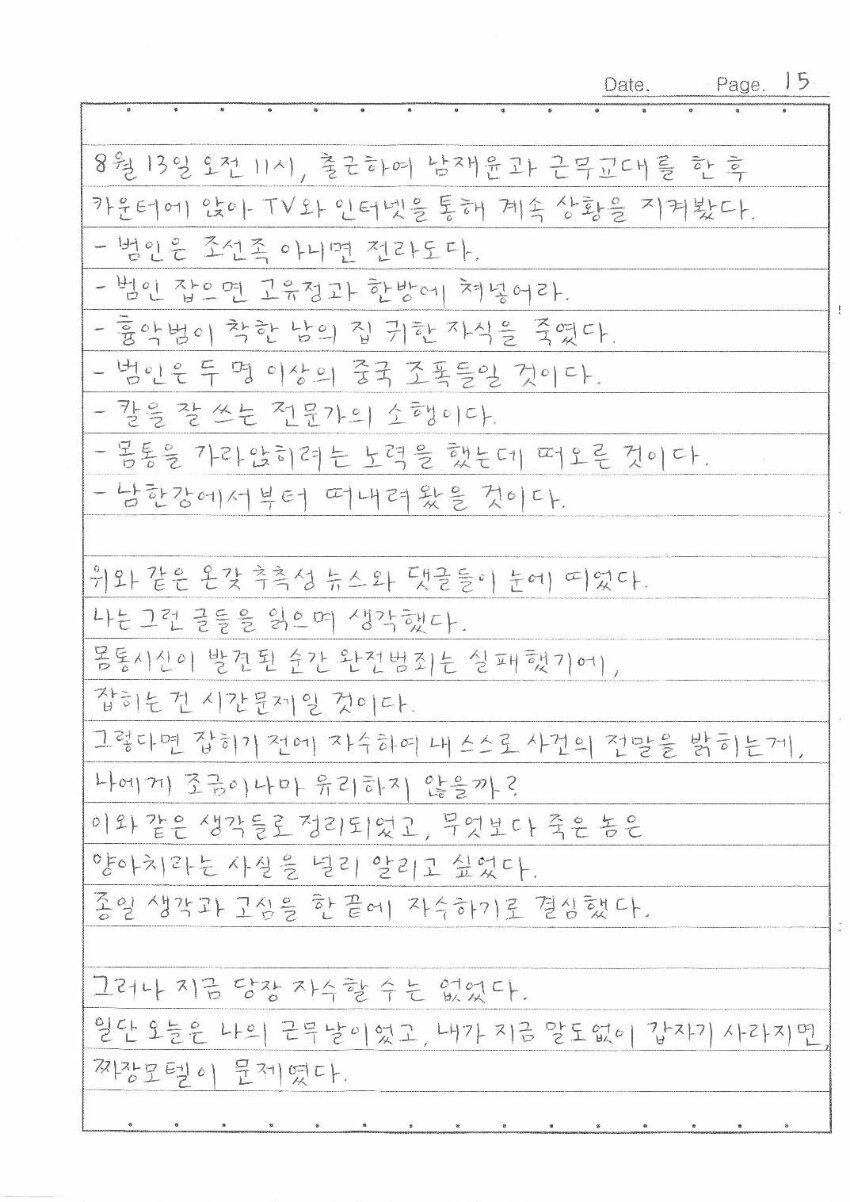 Date. Page. 15
8월 13일 오전 11시, 출근하여 남재윤과 근무교대를 한 후
카운터에 앉아 TV와 인터넷을 통해 계속 상황을 지켜봤다.
- 범인은 조선족 아니면 전라도다.
- 범인 잡으면 고유정과 한방에 쳐넣어라.
- 흉악범이 착한 남의 집 귀한 자식을 죽였다.
- 범인은 두 명 이상의 중국 조폭들일 것이다.
- 칼을 잘 쓰는 전문가의 소행이다.
- 몸통을 가라앉히려는 노력을 했는데 떠오른 것이다.
- 남한강에서부터 떠내려왔을 것이다.
위와 같은 온갖 추측성 뉴스와 댓글들이 눈에 띠었다.
나는 그런 글들을 읽으며 생각했다.
몸통시신이 발견된 순간 완전범죄는 실패했기에,
잡히는 건 시간문제일 것이다.
그렇다면 잡히기 전에 자수하여 내 스스로 사건의 전말을 밝히는게,
나에게 조금이나마 유리하지 않을까?
이와 같은 생각들로 정리되었고, 무엇보다 죽은 놈은
양아치라는 사실을 널리 알리고 싶었다.
종일 생각과 고심을 한 끝에 자수하기로 결심했다.
그러나 지금 당장 자수할 수는 없었다.
일단 오늘은 나의 근무날이었고, 내가 지금 말도없이 갑자기 사라지면,
짜장모텔이 문제였다.